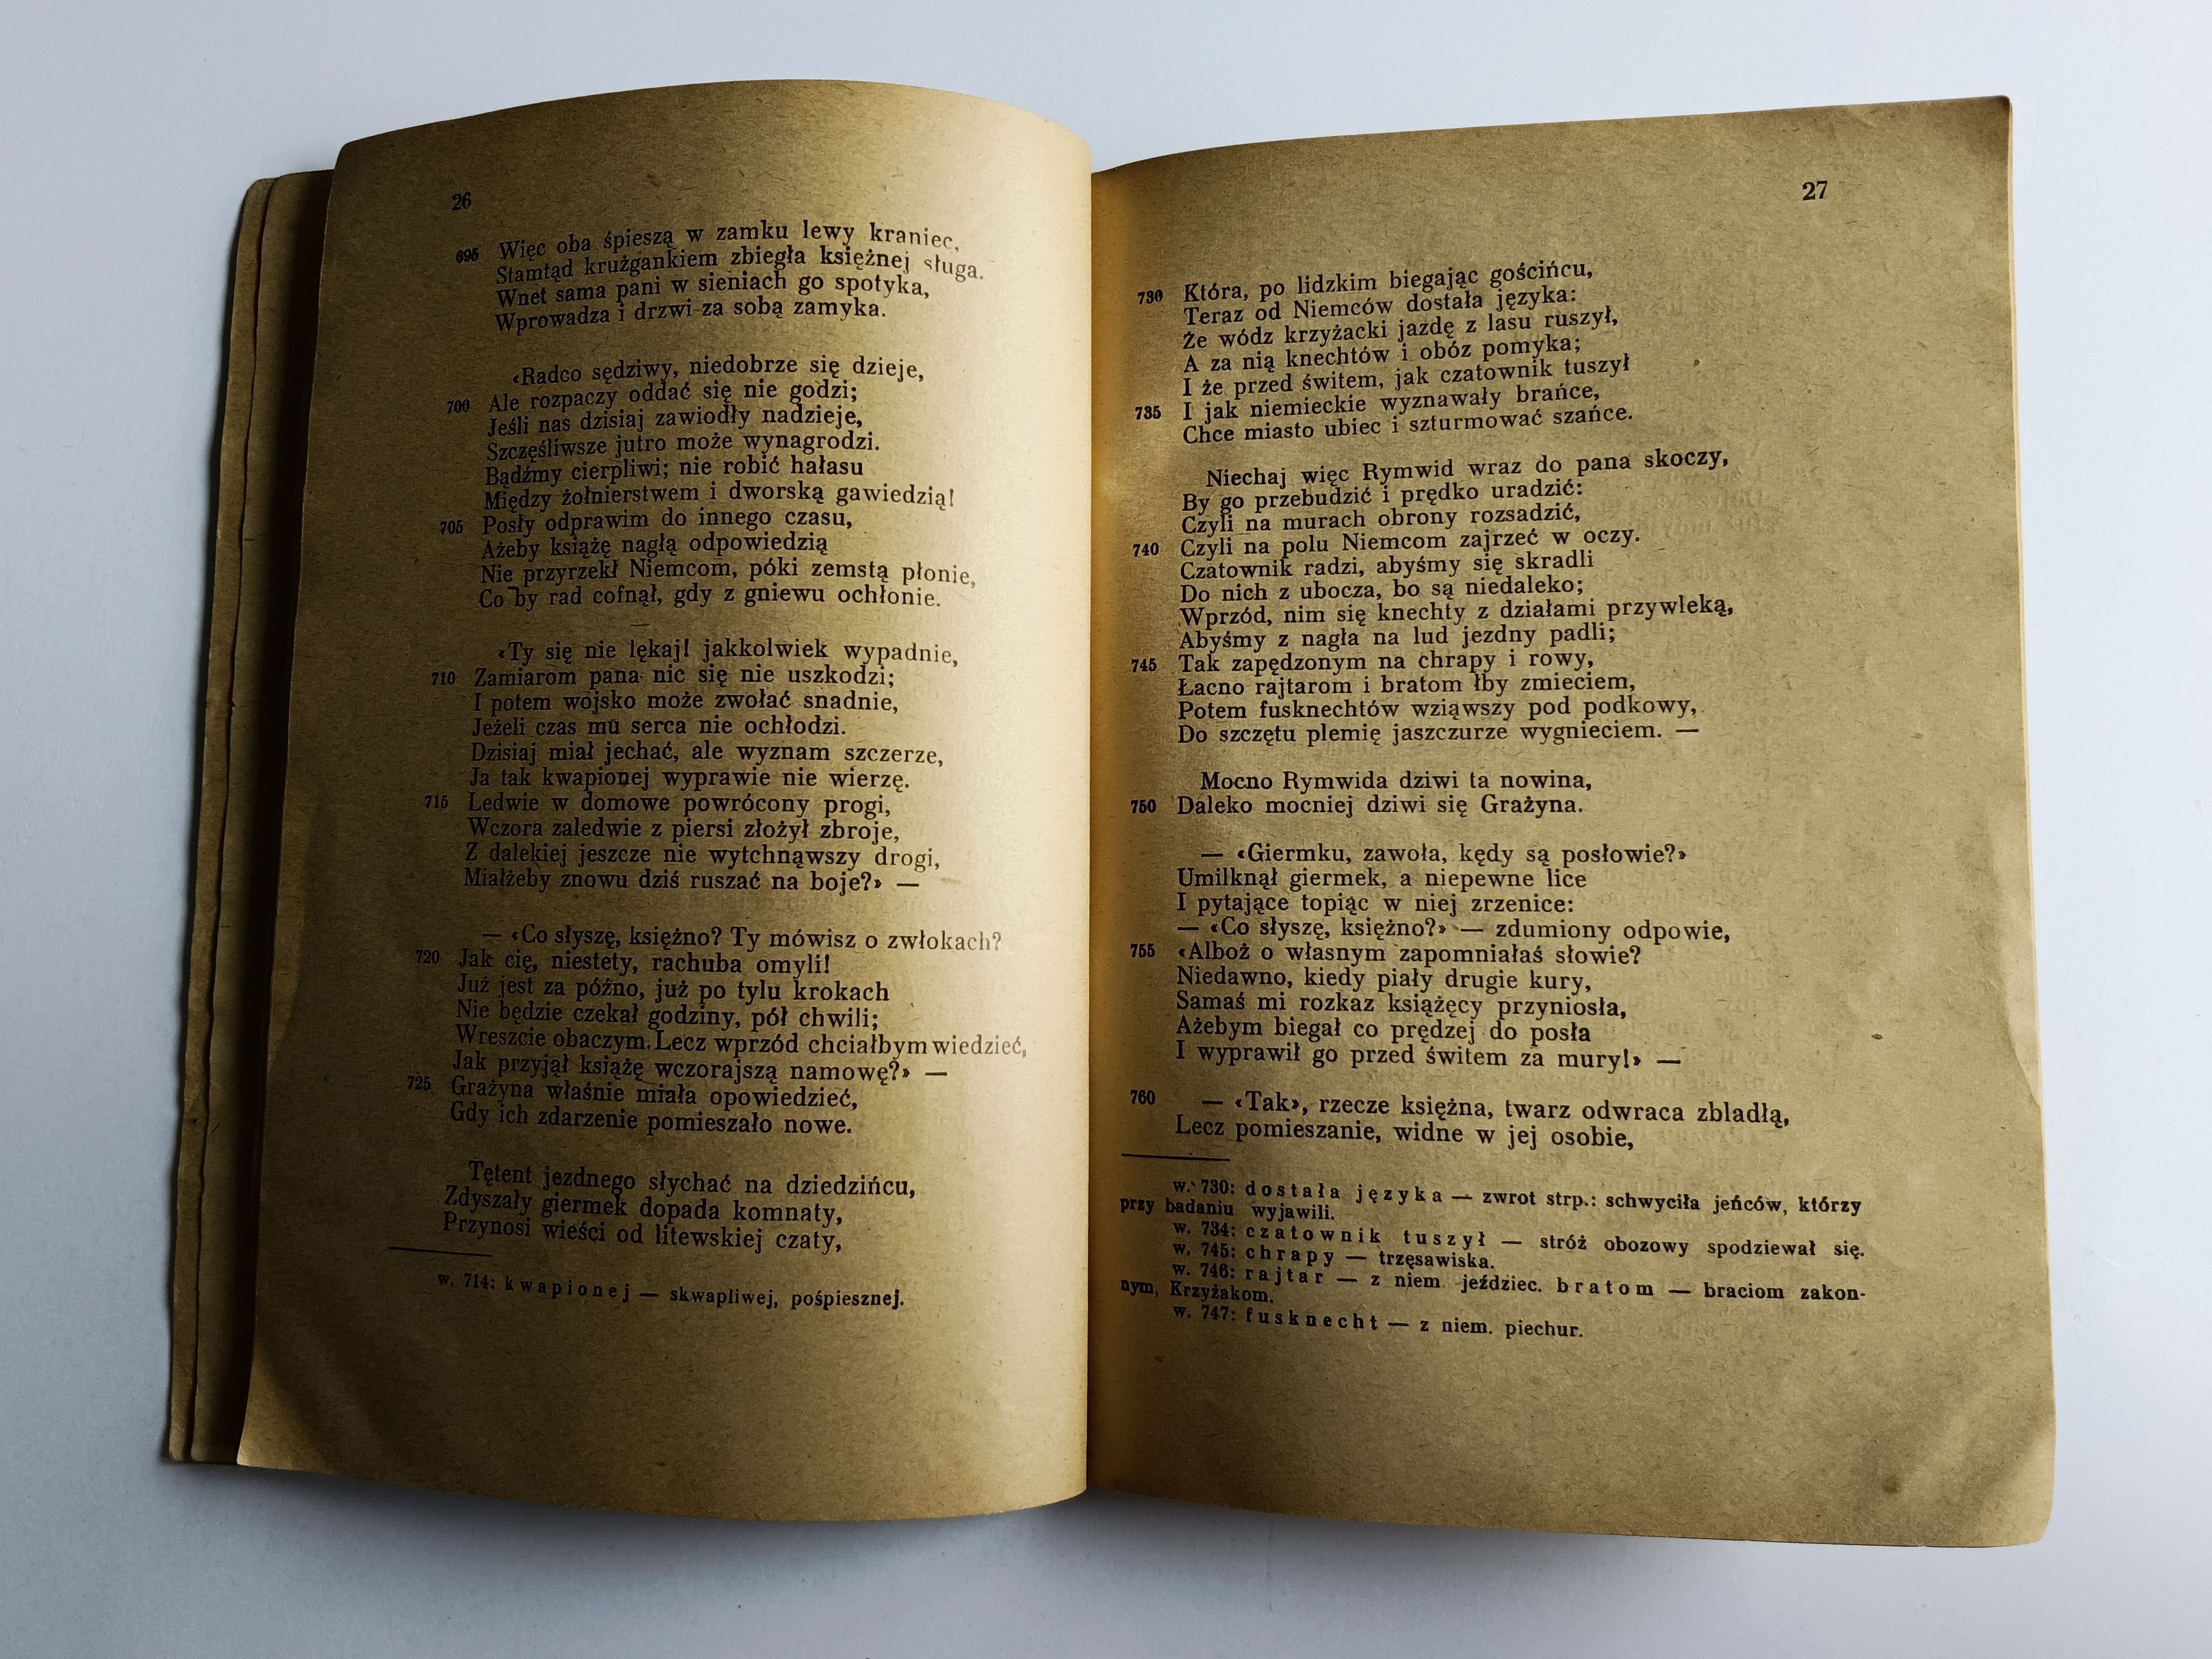 26
695 Więc oba śpieszą w zamku lewy kraniec,
Stamtąd krużgankiem zbiegła księżnej sługa.
Wnet sama pani w sieniach go spotyka,
Wprowadza i drzwi za sobą zamyka.
«Radco sędziwy, niedobrze się dzieje,
700 Ale rozpaczy oddać się nie godzi;
Jeśli nas dzisiaj zawiodły nadzieje,
Szczęśliwsze jutro może wynagrodzi.
Bądźmy cierpliwi; nie robić hałasu
Między żołnierstwem i dworską gawiedzią!
705 Posły odprawim do innego czasu,
Ażeby książę nagłą odpowiedzią
Nie przyrzekł Niemcom, póki zemstą płonie,
Co by rad cofnął, gdy z gniewu ochłonie.
«Ty się nie lękaj! jakkolwiek wypadnie,
710 Zamiarom pana nic się nie uszkodzi;
I potem wojsko może zwołać snadnie,
Jeżeli czas mu serca nie ochłodzi.
Dzisiaj miał jechać, ale wyznam szczerze,
Ja tak kwapionej wyprawie nie wierzę.
715 Ledwie w domowe powrócony progi,
Wczora zaledwie z piersi złożył zbroje,
Z dalekiej jeszcze nie wytchnąwszy drogi,
Miałżeby znowu dziś ruszać na boje?» —
— «Co słyszę, księżno? Ty mówisz o zwłokach?
720 Jak cię, niestety, rachuba omyli!
Już jest za późno, już po tylu krokach
Nie będzie czekał godziny, pół chwili;
Wreszcie obaczym. Lecz wprzód chciałbym wiedzieć,
Jak przyjął książę wczorajszą namowę?» —
725 Grażyna właśnie miała opowiedzieć,
Gdy ich zdarzenie pomieszało nowe.
Tętent jezdnego słychać na dziedzińcu,
Zdyszały giermek dopada komnaty,
Przynosi wieści od litewskiej czaty,
w. 714: kwapionej — skwapliwej, pośpiesznej.
27
730 Która, po lidzkim biegając gościńcu,
Teraz od Niemców dostała języka:
Że wódz krzyżacki jazdę z lasu ruszył,
A za nią knechtów i obóz pomyka;
I że przed świtem, jak czatownik tuszył
735 I jak niemieckie wyznawały brańce,
Chce miasto ubiec i szturmować szańce.
Niechaj więc Rymwid wraz do pana skoczy,
By go przebudzić i prędko uradzić:
Czyli na murach obrony rozsadzić,
740 Czyli na polu Niemcom zajrzeć w oczy.
Czatownik radzi, abyśmy się skradli
Do nich z ubocza, bo są niedaleko;
Wprzód, nim się knechty z działami przywleką,
Abyśmy z nagła na lud jezdny padli;
745 Tak zapędzonym na chrapy i rowy,
Łacno rajtarom i bratom łby zmieciem,
Potem fusknechtów wziąwszy pod podkowy,
Do szczętu plemię jaszczurze wygnieciem. —
Mocno Rymwida dziwi ta nowina,
750 Daleko mocniej dziwi się Grażyna.
— «Giermku, zawoła, kędy są posłowie?»
Umilknął giermek, a niepewne lice
I pytające topiąc w niej zrzenice:
— «Co słyszę, księżno?» — zdumiony odpowie,
755 «Alboż o własnym zapomniałaś słowie?
Niedawno, kiedy piały drugie kury,
Samaś mi rozkaz książęcy przyniosła,
Ażebym biegał co prędzej do posła
I wyprawił go przed świtem za mury!» —
760 — «Tak», rzecze księżna, twarz odwraca zbladłą,
Lecz pomieszanie, widne w jej osobie,
w. 730: dostała języka — zwrot strp.: schwyciła jeńców, którzy
przy badaniu wyjawili.
w. 734: czatownik tuszył — stróż obozowy spodziewał się.
w. 745: chrapy — trzęsawiska.
w. 746: rajtar — z niem. jeździec. bratom — braciom zakon-
nym, Krzyżakom.
w. 747: fusknecht — z niem. piechur.